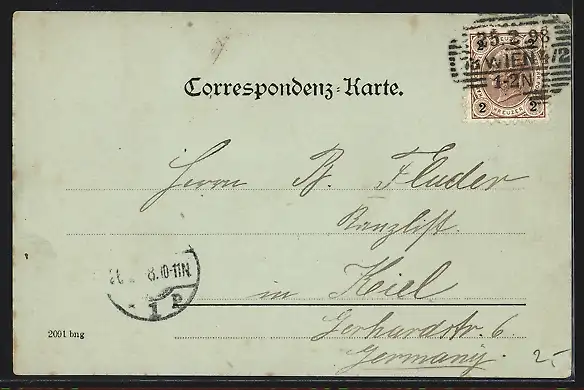 25.2.98
WIEN 4/2
1-2N
2 2
KREUZER
Correspondenz-Karte.
Herrn B. Fluder
Kanzlist.
in Kiel
8.10-11N
* 1 P
Gerhardstr. 6.
2091 bng
Germany.
2-